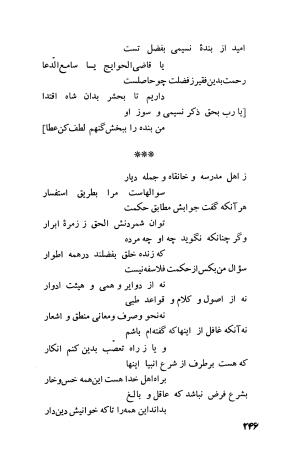 امید از بندهٔ نسیمی بفضل تست
یا قاضی‌الحوایج یسا سامع‌الدّعا
رحمت‌بدین‌فقیرزفضلت‌چوحاصلست
داریم تا بحشر بدان شاه اقتدا
[یا رب بحق ذکر نسیمی و سوز او
من بنده را ببخش‌گنهم لطف‌کن‌عطا]
***
ز اهل مدرسه و خانقاه و جمله دیار
سوالهاست مرا بطریق استفسار
هرآنکه گفت جوابش مطابق حکمت
توان شمردنش الحق ز زمرهٔ ابرار
وگر چنانکه نگوید چه او چه مرده
که زنده خلق بفضلند درهمه اطوار
سؤال من‌بکس‌ازحکمت فلاسفه‌نیست
نه از دوایر و همی و هیئت ادوار
نه از اصول و کلام و قواعد طبی
نه‌نحو وصرف‌ومعانی منطق و اشعار
نه‌آنکه غافل از اینهاکه گفته‌ام باشم
و یا ز راه تعصّب بدین کنم انکار
که هست برطرف از شرع انبیا اینها
براه‌اهل خدا هست این‌همه خس‌وخار
بشرع فرض نباشد که عاقل و بالغ
بداند‌این همه‌را تا‌که خوانیش دین‌دار
۲۴۶